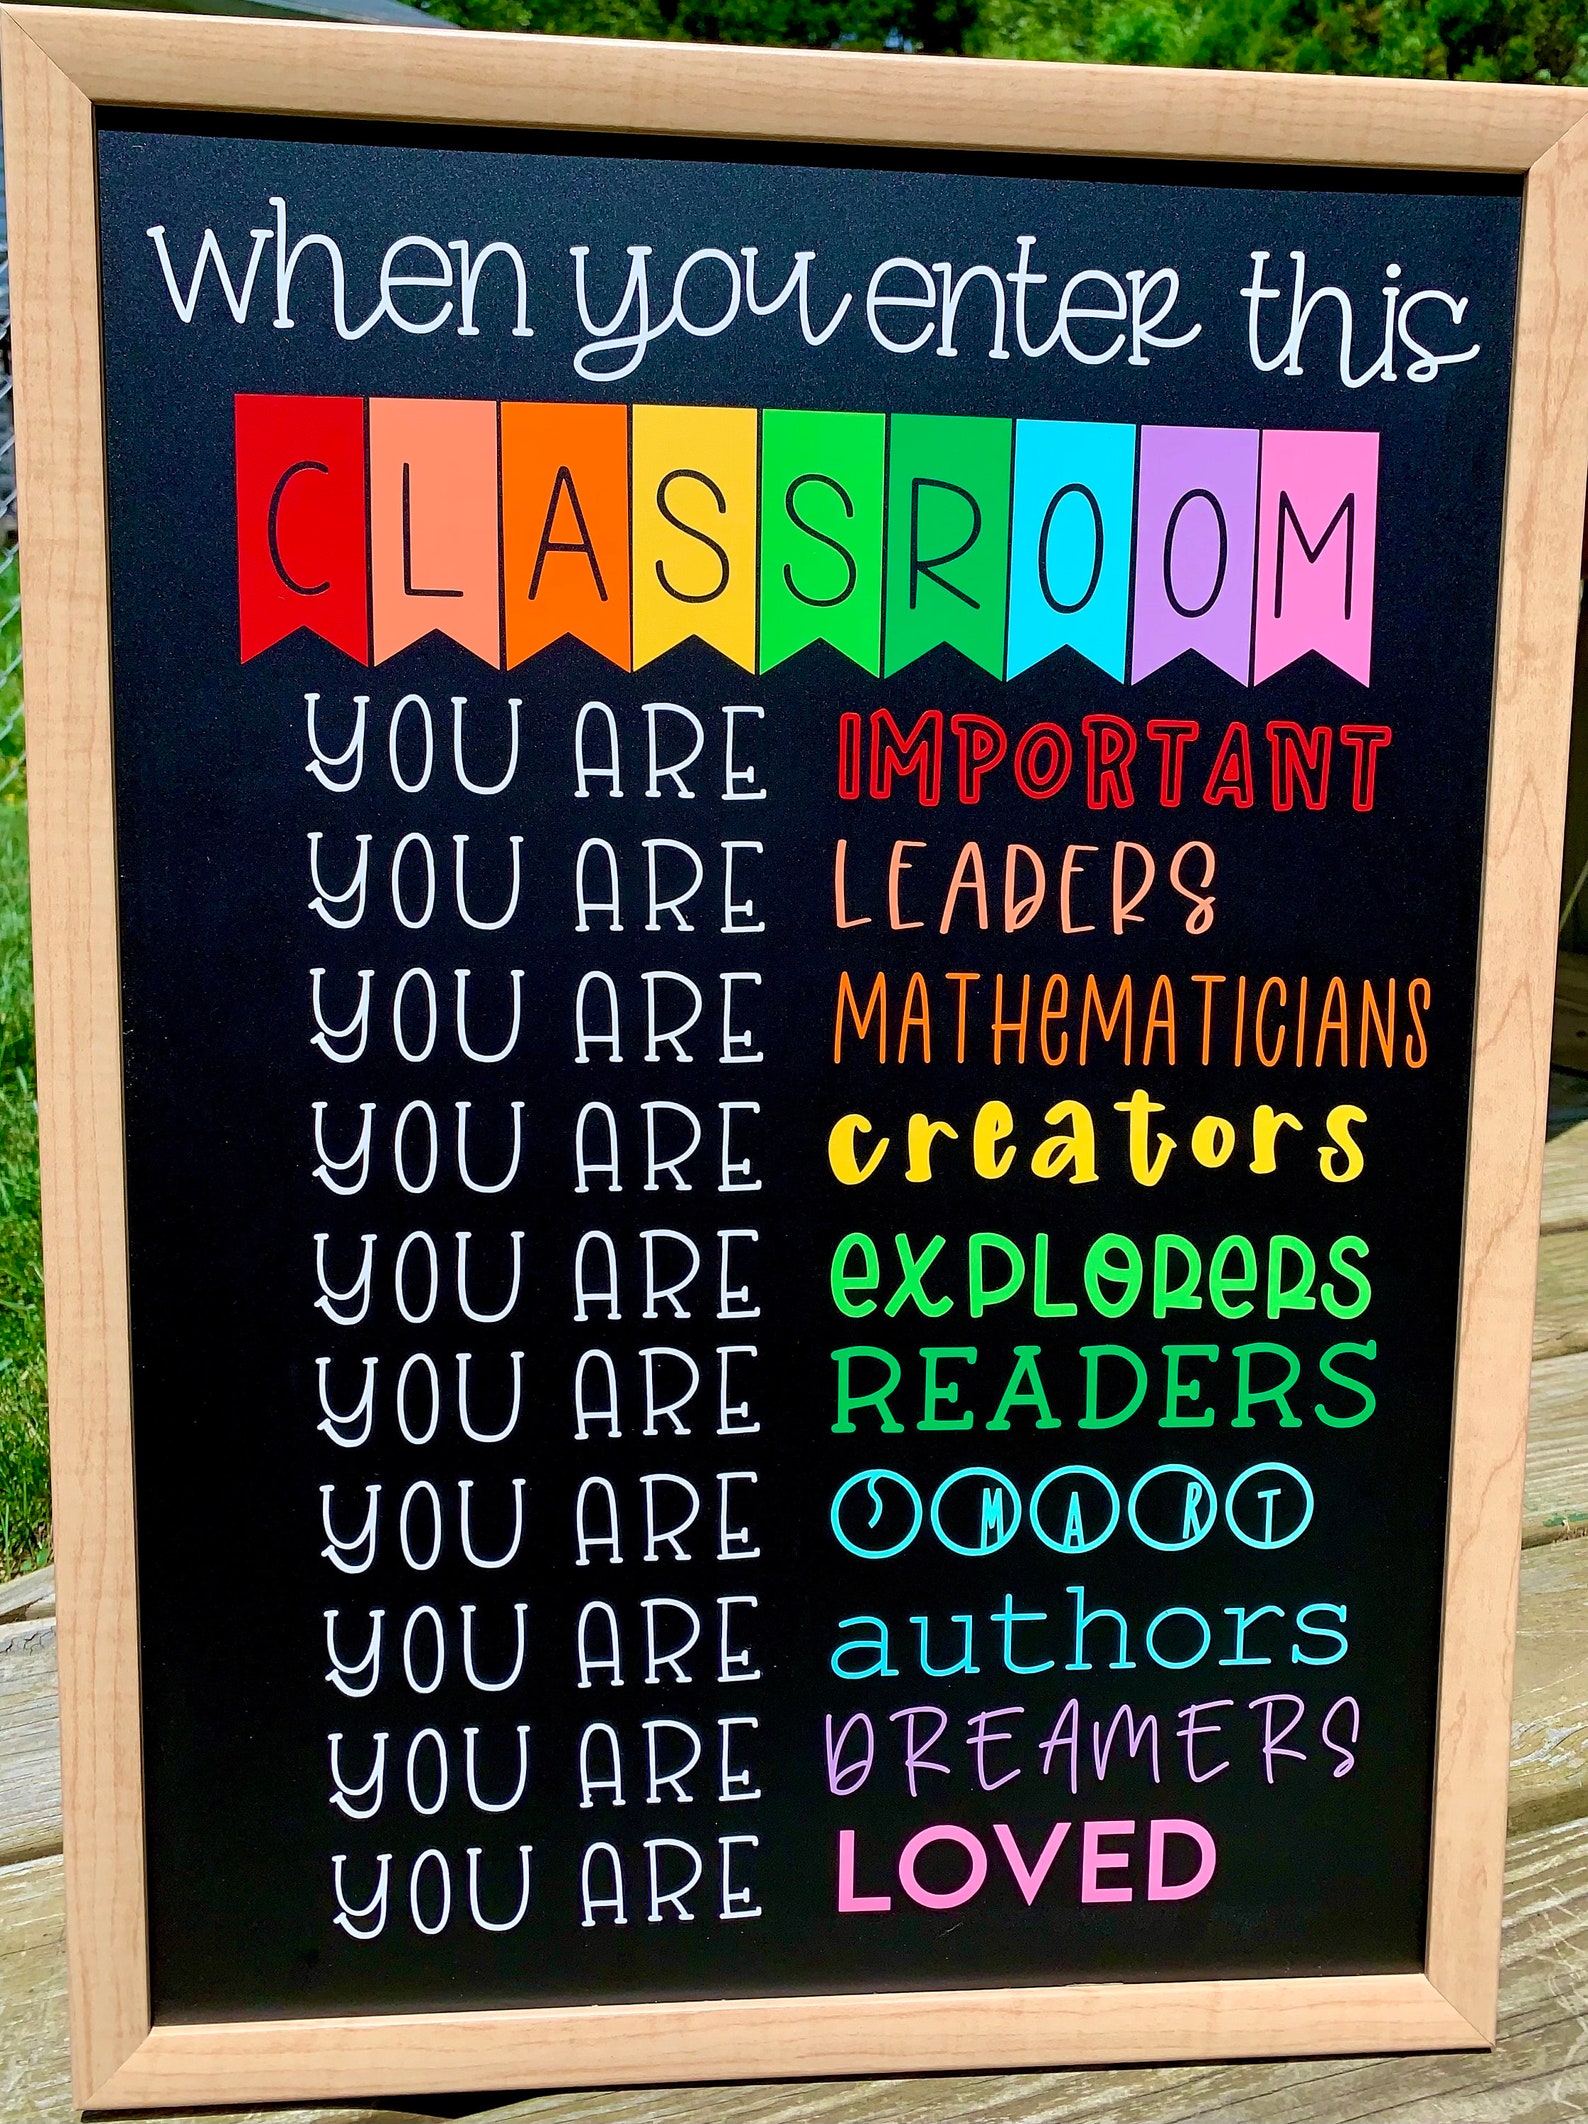 when you enter this
CLASSROOM
YOU ARE IMPORTANT
YOU ARE LEADERS
YOU ARE MATHeMATICIANS
YOU ARE creators
YOU ARE eXPLOReRS
YOU ARE READERS
YOU ARE SMART
YOU ARE authors
YOU ARE DREAMERS
YOU ARE LOVED